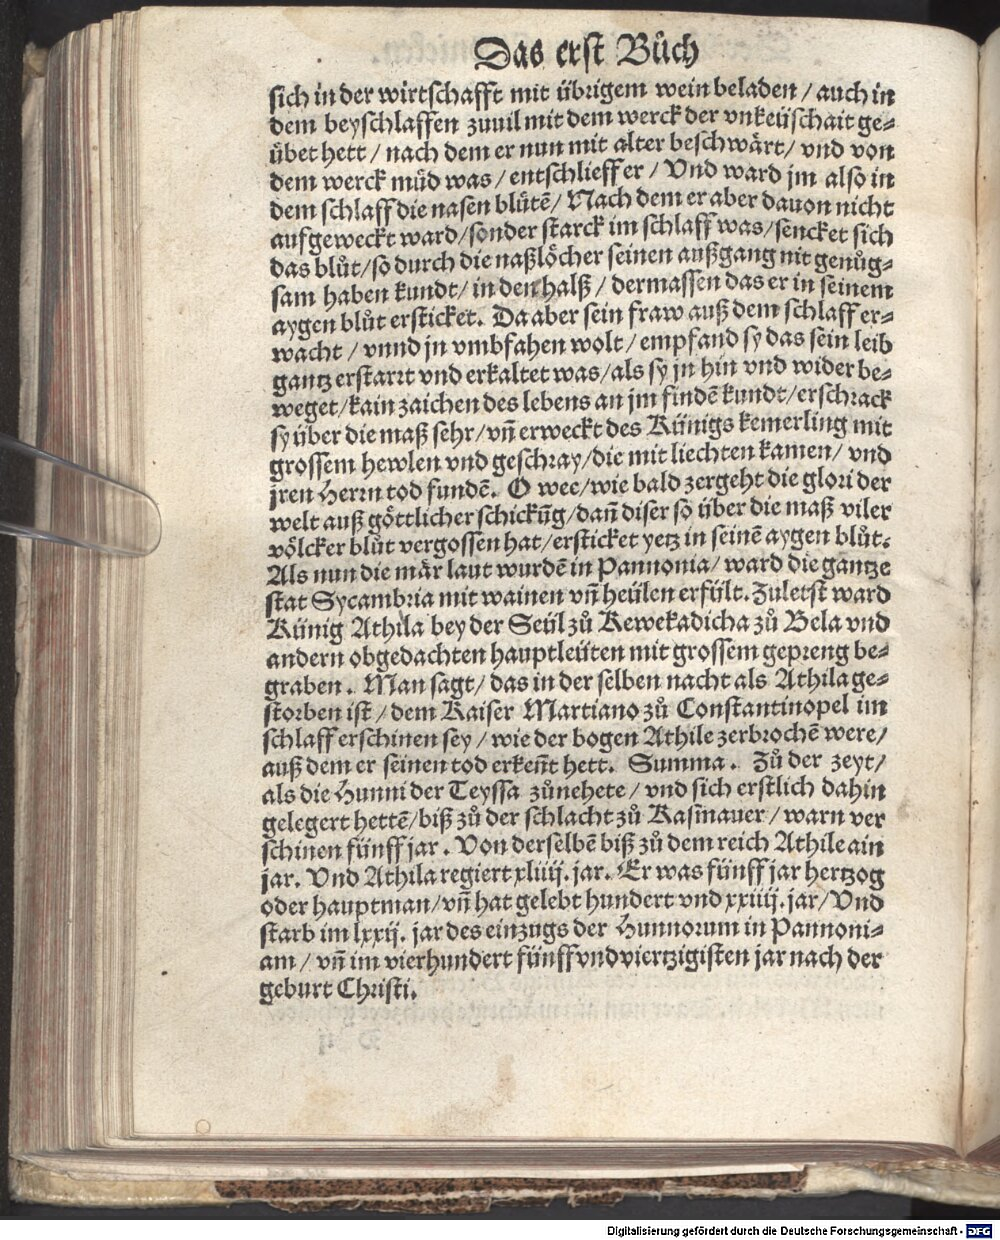 Das erst Bůch
sich in der wirtschafft mit übrigem wein beladen / auch in
dem beyschlaffen zuuil mit dem werck der vnkeüschait ge⸗
übet hett / nach dem er nun mit alter beschwärt / vnd von
dem werck müd was / entschlieff er / Vnd ward jm also in
dem schlaff die nasen blütē / Nach dem er aber dauon nicht
aufgeweckt ward / sonder starck im schlaff was / sencket sich
das blůt / so durch die naßlöcher seinen außgang nit genůg⸗
sam haben kundt / in den halß / dermassen das er in seinem
aygen blůt ersticket. Da aber sein fraw auß dem schlaff er⸗
wacht / vnnd jn vmbfahen wolt / empfand sy das sein leib
gantz erstarrt vnd erkaltet was / als sy jn hin vnd wider be⸗
weget / kain zaichen des lebens an jm findē kundt / erschrack
sy über die maß sehr / vñ erweckt des Künigs kemerling mit
grossem hewlen vnd geschray / die mit liechten kamen / vnd
jren Herrn tod fundē. O wee / wie bald zergeht die glori der
welt auß göttlicher schickūg / dañ diser so über die maß viler
völcker blůt vergossen hat / ersticket yetz in seinē aygen blůt.
Als nun die mär laut wurdē in Pannonia / ward die gantze
stat Sycambria mit wainen vñ heülen erfült. Zuletst ward
Künig Athila bey der Seül zů Kewekadicha zů Bela vnd
andern obgedachten hauptleüten mit grossem gepreng be⸗
graben. Man sagt / das in der selben nacht als Athila ge⸗
storben ist / dem Kaiser Martiano zů Constantinopel im
schlaff erschinen sey / wie der bogen Athile zerbrochē were /
auß dem er seinen tod erkeñt hett. Summa. Zů der zeyt /
als die Hunni der Teyssa zůnehete / vnd sich erstlich dahin
gelegert hettē / biß zů der schlacht zů Kasmauer / warn ver
schinen fünff jar. Von derselbē biß zů dem reich Athile ain
jar. Vnd Athila regiert xliiij. jar. Er was fünff jar hertzog
oder hauptman / vñ hat gelebt hundert vnd xxiiij. jar / Vnd
starb im lxxij. jar des einzugs der Hunnorum in Pannoni⸗
am / vñ im vierhundert fünffvndviertzigisten jar nach der
geburt Christi.
Digitalisierung gefördert durch die Deutsche Forschungsgemeinschaft - DFG